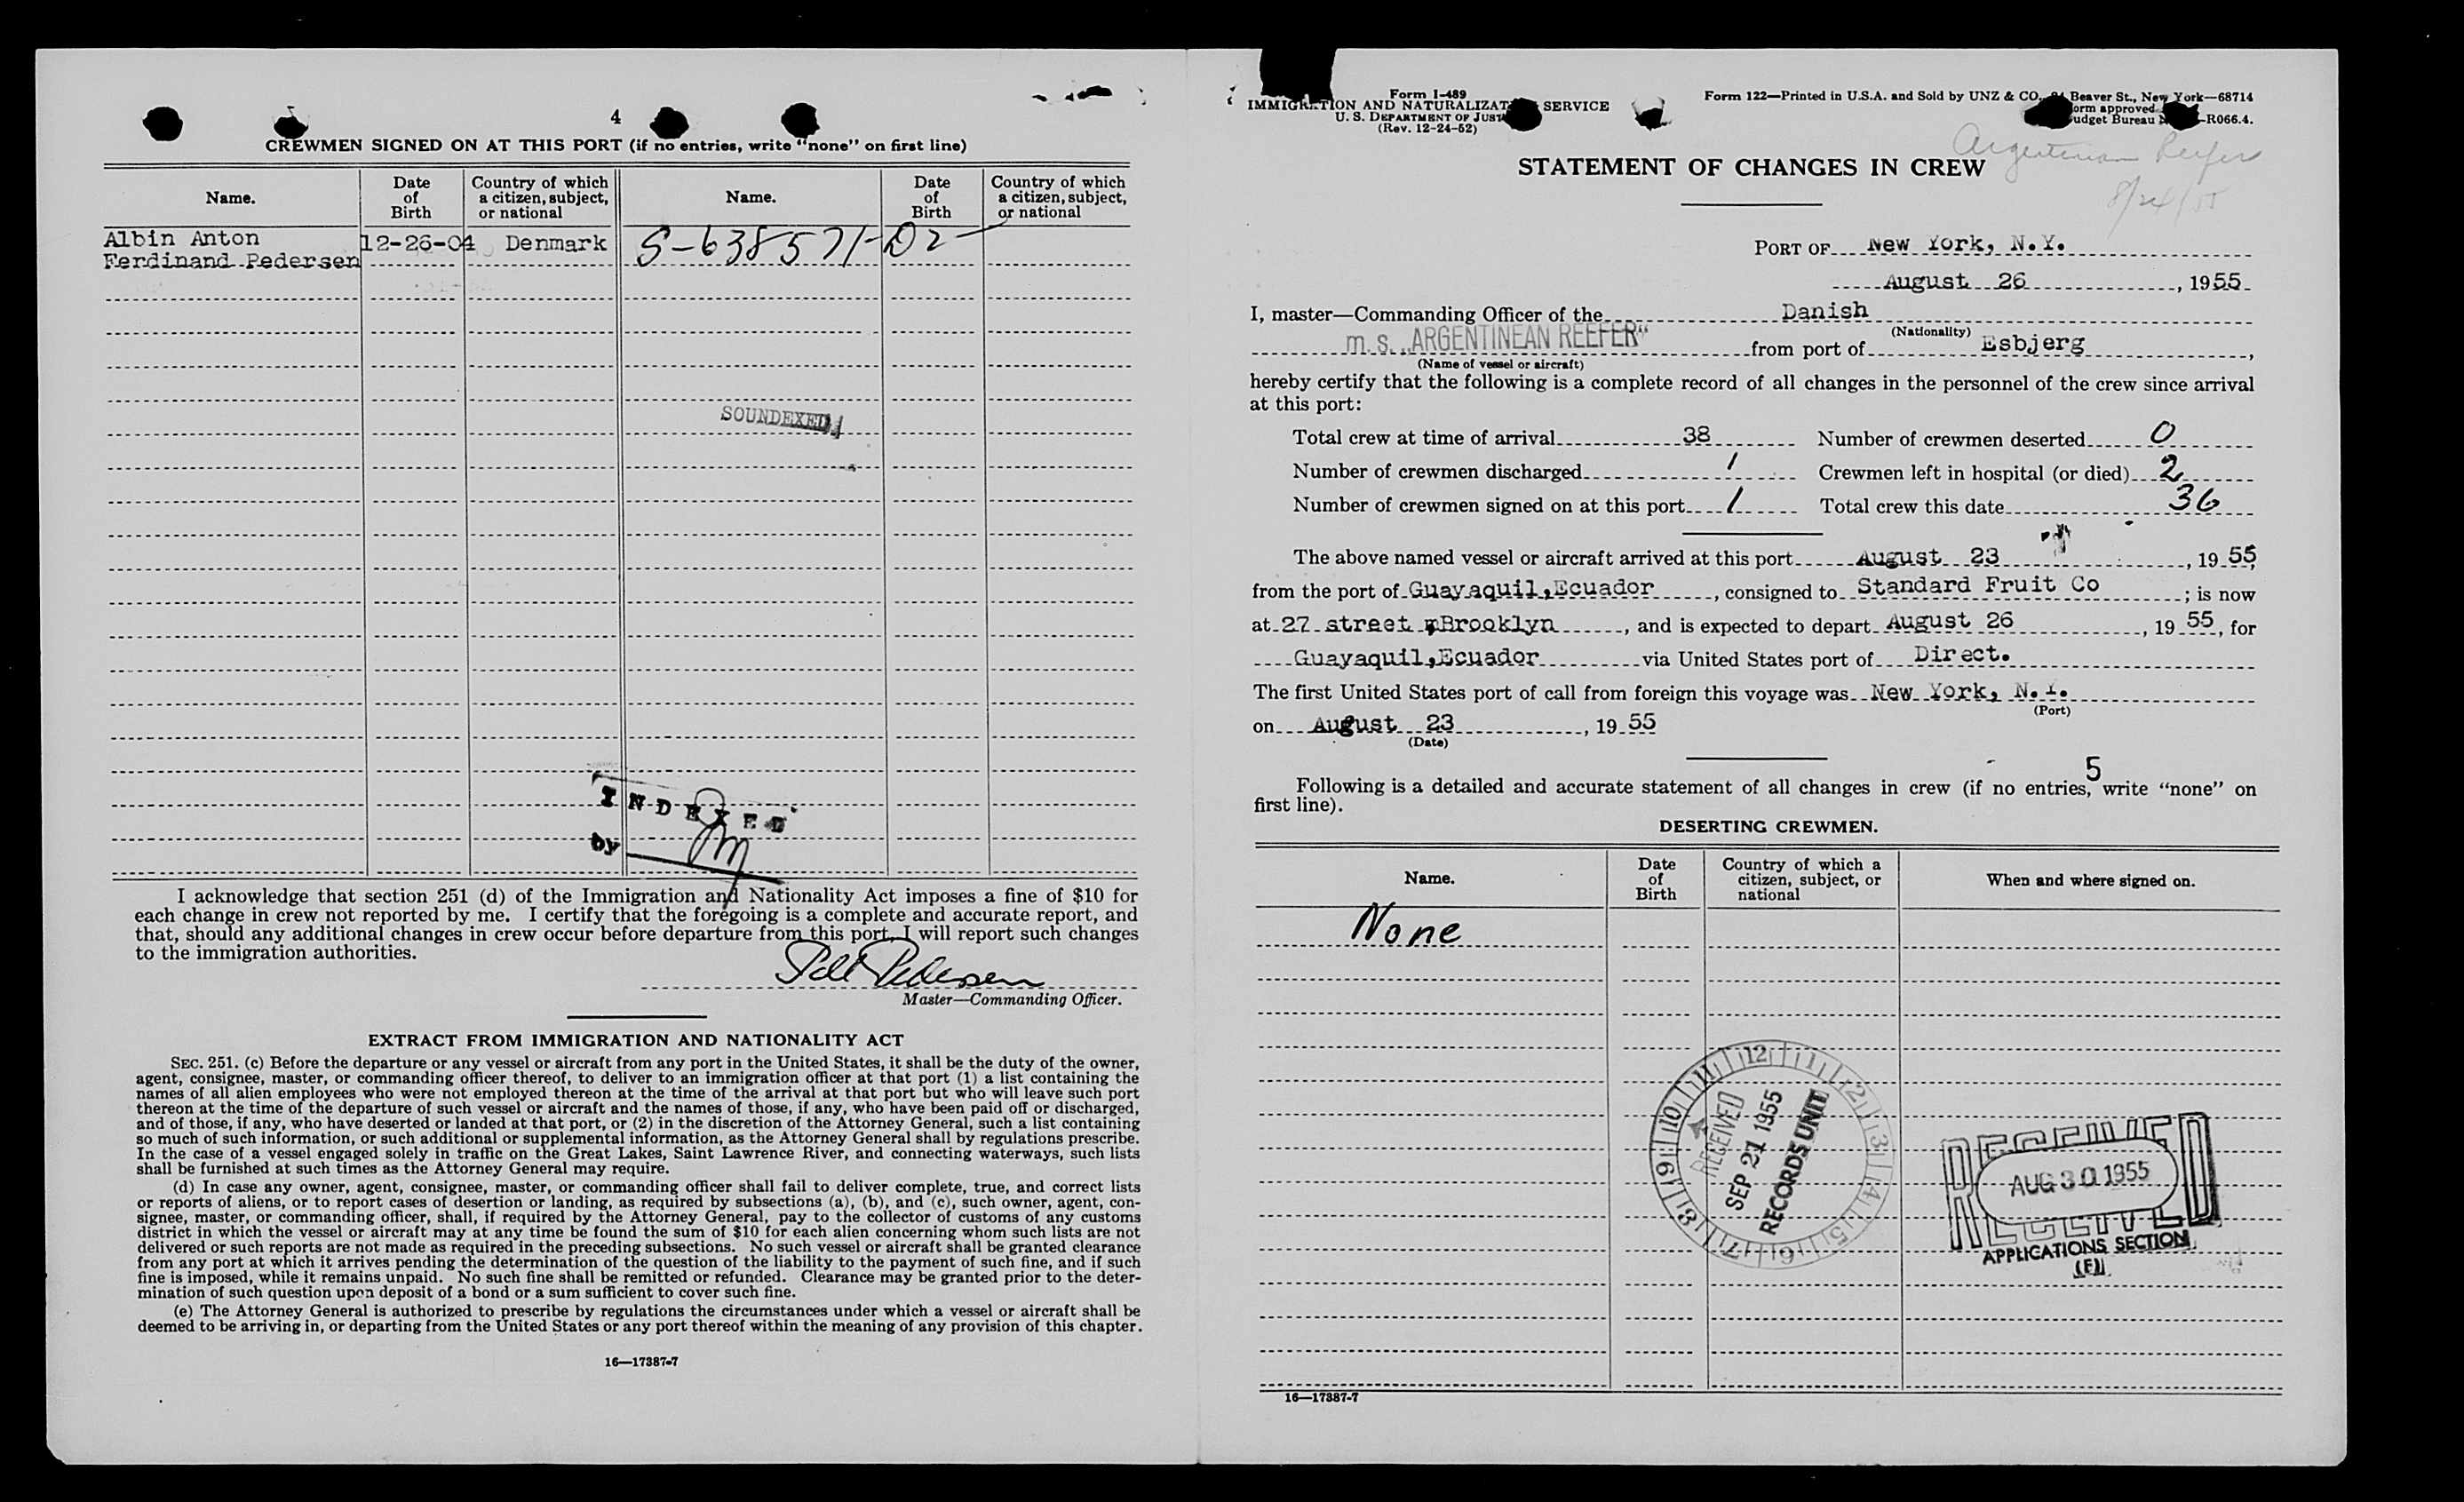 4
CREWMEN SIGNED ON AT THIS PORT (if no entries, write "none" on first line)
Name. Date of Birth Country of which a citizen, subject, or national Name. Date of Birth Country of which a citizen, subject, or national
Albin Anton 12-26-04 Denmark S-638571-D2
Ferdinand Pedersen
SOUNDEXED
INDEXED
by
I acknowledge that section 251 (d) of the Immigration and Nationality Act imposes a fine of $10 for
each change in crew not reported by me. I certify that the foregoing is a complete and accurate report, and
that, should any additional changes in crew occur before departure from this port, I will report such changes
to the immigration authorities.
Pedersen
Master—Commanding Officer.
EXTRACT FROM IMMIGRATION AND NATIONALITY ACT
SEC. 251. (c) Before the departure or any vessel or aircraft from any port in the United States, it shall be the duty of the owner,
agent, consignee, master, or commanding officer thereof, to deliver to an immigration officer at that port (1) a list containing the
names of all alien employees who were not employed thereon at the time of the arrival at that port but who will leave such port
thereon at the time of the departure of such vessel or aircraft and the names of those, if any, who have been paid off or discharged,
and of those, if any, who have deserted or landed at that port, or (2) in the discretion of the Attorney General, such a list containing
so much of such information, or such additional or supplemental information, as the Attorney General shall by regulations prescribe.
In the case of a vessel engaged solely in traffic on the Great Lakes, Saint Lawrence River, and connecting waterways, such lists
shall be furnished at such times as the Attorney General may require.
(d) In case any owner, agent, consignee, master, or commanding officer shall fail to deliver complete, true, and correct lists
or reports of aliens, or to report cases of desertion or landing, as required by subsections (a), (b), and (c), such owner, agent, con-
signee, master, or commanding officer, shall, if required by the Attorney General, pay to the collector of customs of any customs
district in which the vessel or aircraft may at any time be found the sum of $10 for each alien concerning whom such lists are not
delivered or such reports are not made as required in the preceding subsections. No such vessel or aircraft shall be granted clearance
from any port at which it arrives pending the determination of the question of the liability to the payment of such fine, and if such
fine is imposed, while it remains unpaid. No such fine shall be remitted or refunded. Clearance may be granted prior to the deter-
mination of such question upon deposit of a bond or a sum sufficient to cover such fine.
(e) The Attorney General is authorized to prescribe by regulations the circumstances under which a vessel or aircraft shall be
deemed to be arriving in, or departing from the United States or any port thereof within the meaning of any provision of this chapter.
16—17387-7
Form I-489
IMMIGRATION AND NATURALIZAT SERVICE
U. S. DEPARTMENT OF JUST
(Rev. 12-24-52)
Form 122—Printed in U.S.A. and Sold by UNZ & CO. Beaver St., New York—68714
orm approved
udget Bureau -R066.4.
Argentinean Reefer
8/24/55
STATEMENT OF CHANGES IN CREW
PORT OF New York, N.Y.
August 26, 1955
I, master—Commanding Officer of the Danish
(Nationality)
m.s. „ARGENTINEAN REEFER" from port of Esbjerg,
(Name of vessel or aircraft)
hereby certify that the following is a complete record of all changes in the personnel of the crew since arrival
at this port:
Total crew at time of arrival 38 Number of crewmen deserted 0
Number of crewmen discharged 1 Crewmen left in hospital (or died) 2
Number of crewmen signed on at this port 1 Total crew this date 36
The above named vessel or aircraft arrived at this port August 23, 1955
from the port of Guayaquil,Ecuador, consigned to Standard Fruit Co; is now
at 27 street Brooklyn, and is expected to depart August 26, 1955, for
Guayaquil,Ecuador via United States port of Direct.
The first United States port of call from foreign this voyage was New York, N.Y.
(Port)
on August 23, 1955
(Date)
5
Following is a detailed and accurate statement of all changes in crew (if no entries, write "none" on
first line).
DESERTING CREWMEN.
Name. Date of Birth Country of which a citizen, subject, or national When and where signed on.
None
12 1 2 3 4 5 6 7 8 9 10 11
RECEIVED
SEP 21 1955
RECORDS UNIT
RECEIVED
AUG 30 1955
RECEIVED
APPLICATIONS SECTION
(E)
16—17387-7